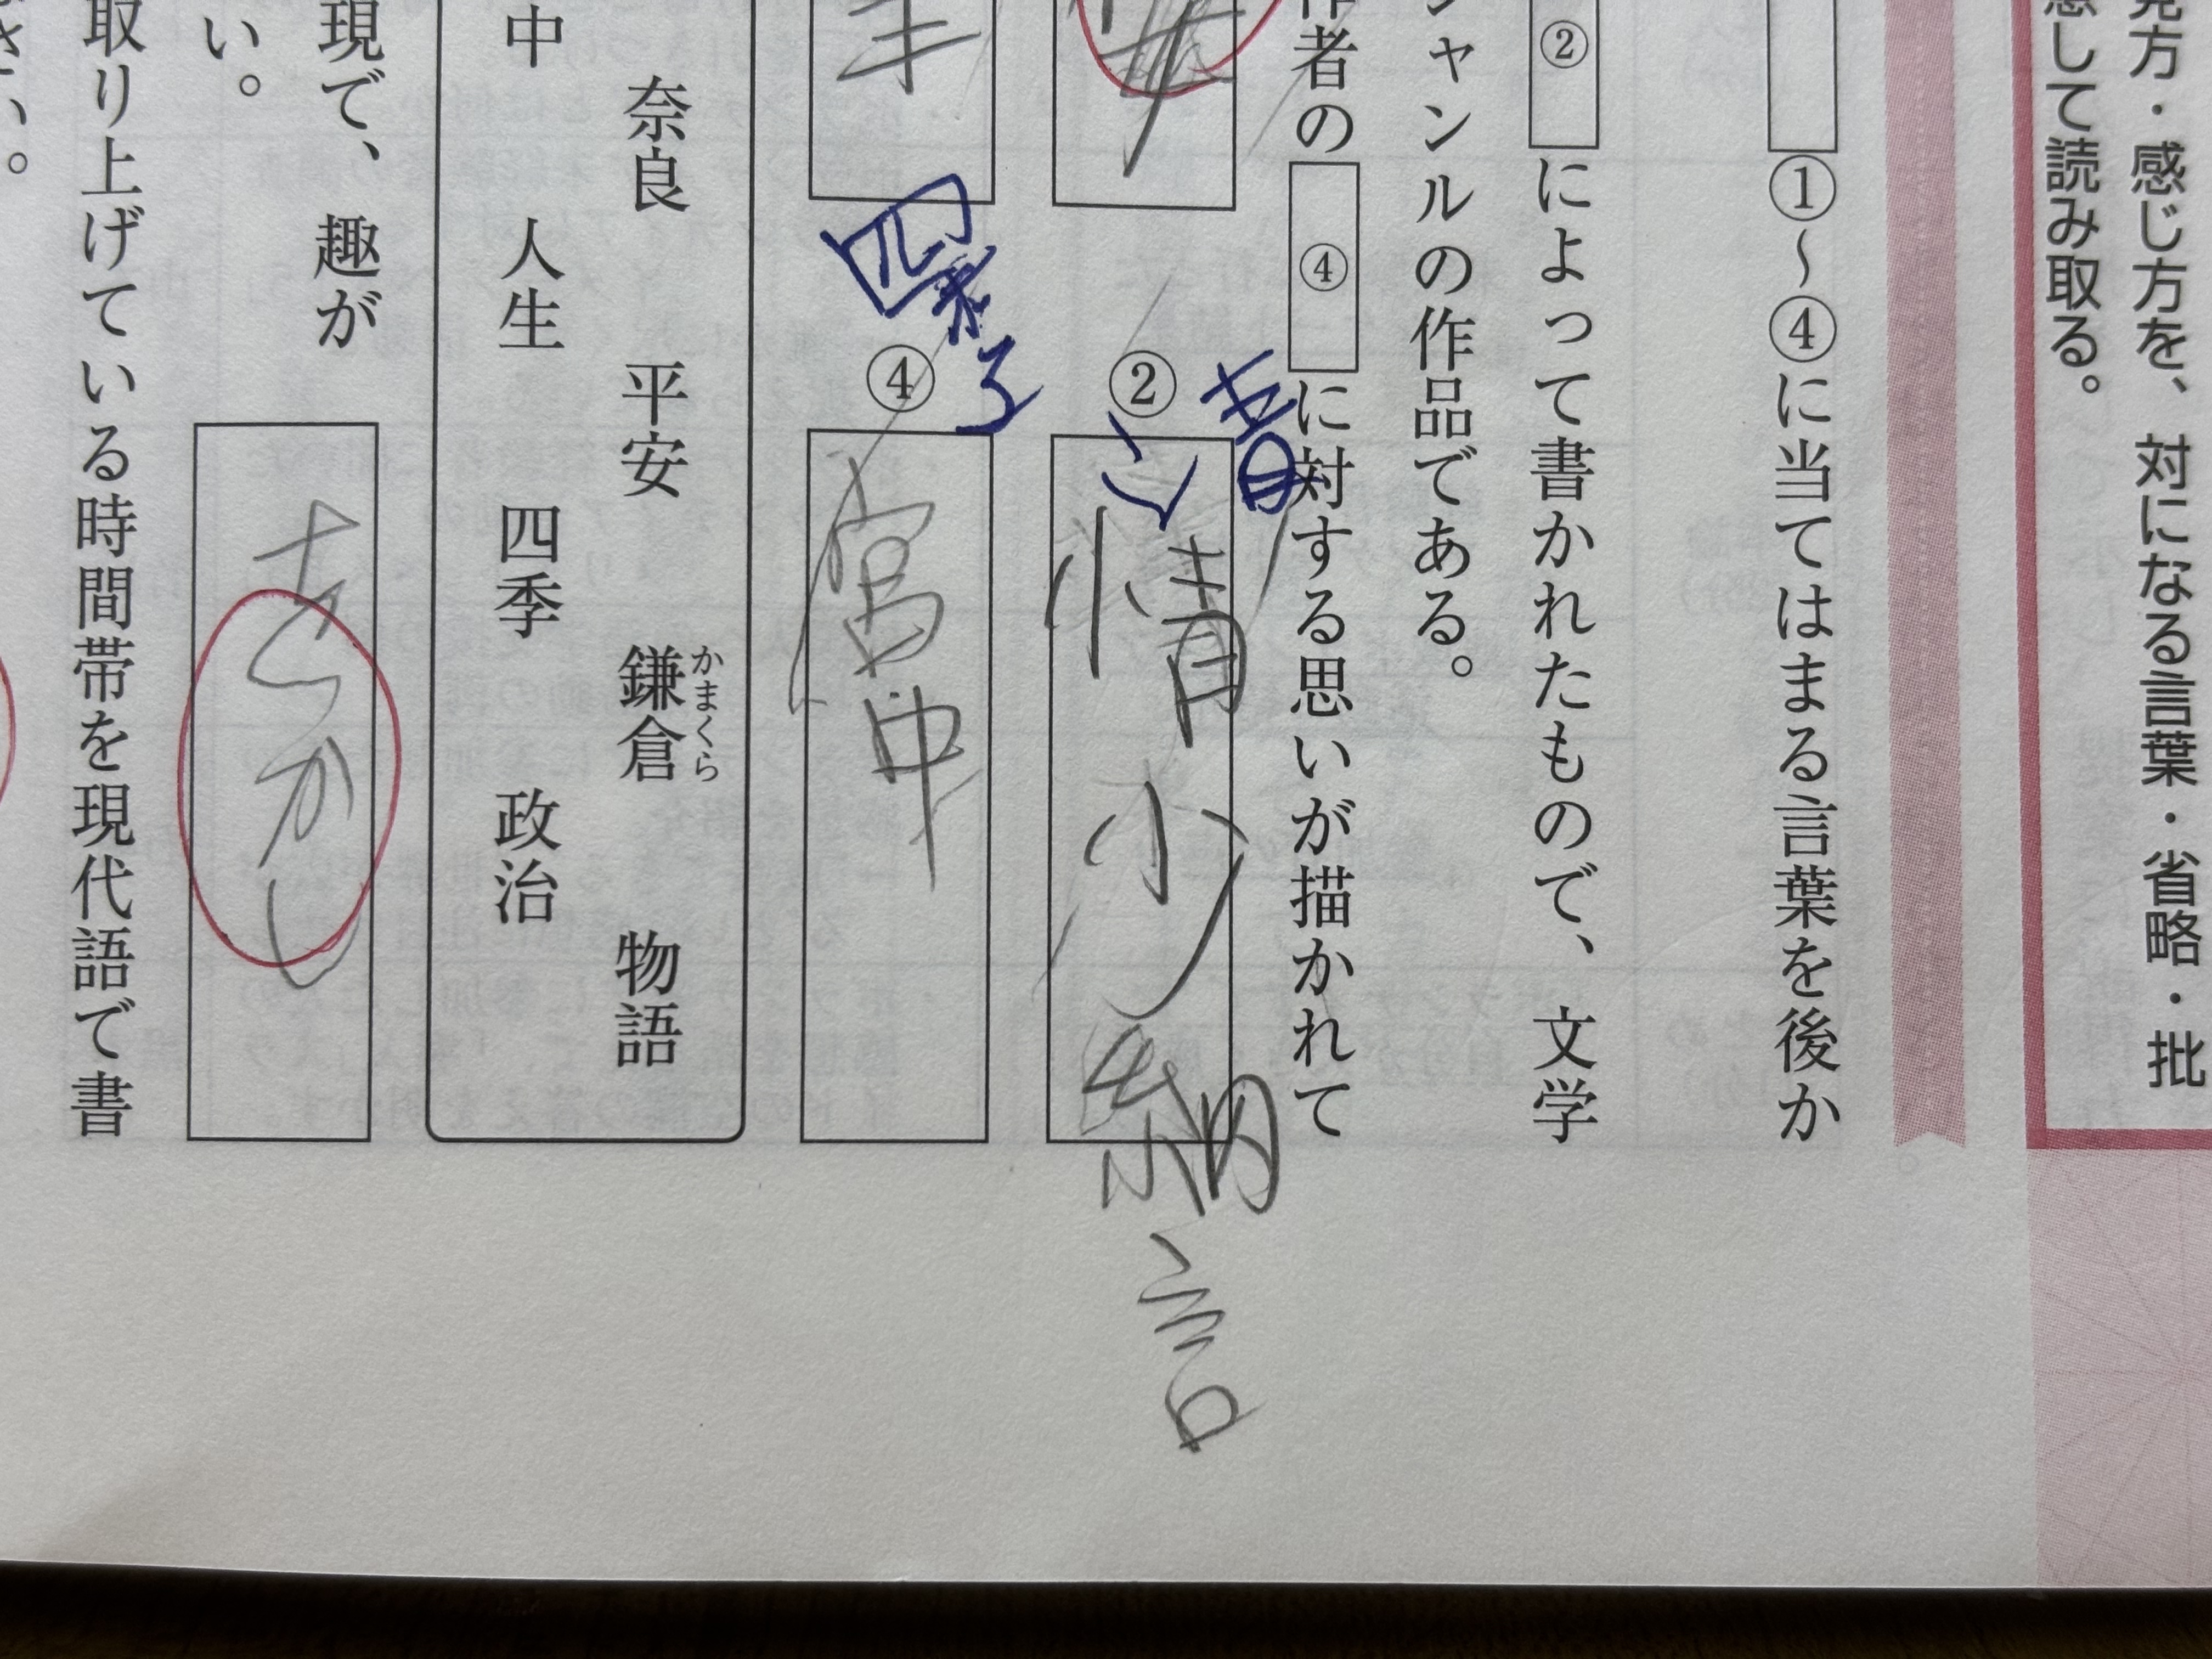 見方・感じ方を、対になる言葉・省略・批
して読み取る。
①～④に当てはまる言葉を後か
②によって書かれたもので、文学
ャンルの作品である。
作者の④に対する思いが描かれて
② 情少納言
清
④ 宮中
四季
奈良 平安 鎌倉 物語
かまくら
中 人生 四季 政治
現で、趣が
い。
をかし
取り上げている時間帯を現代語で書
さい。